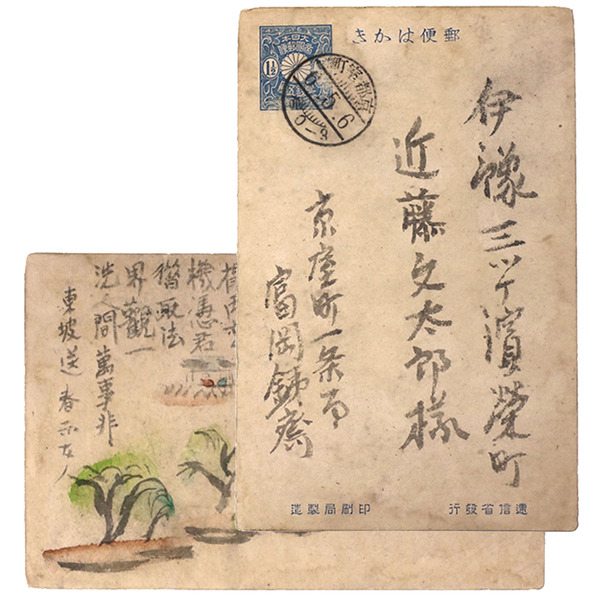 郵便はかき
1½
伊豫三ツ濱榮町
近藤文太郎様
京室町一条
富岡銕齋
遞信省發行
印刷局製造
機憑君
借取法
界觀一
洗人間萬事非
東坡送春和友人